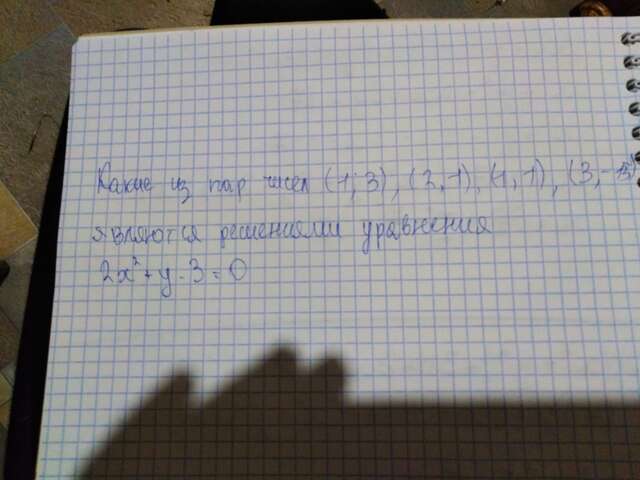 Какие из пар чисел (1; 3), (2, 1), (1, 1), (3,
являются решениями уравнения
2x² + y - 3 = 0